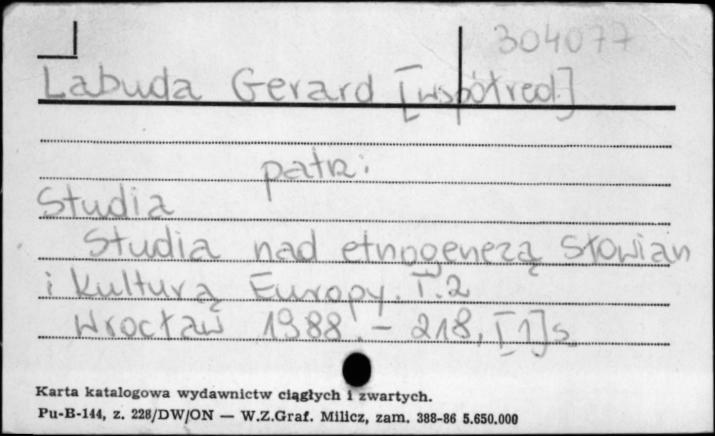 304077
Labuda Gerard [współred.]
patrz:
Studia
Studia nad etnogenezą Słowian
i kulturą Europy. T.2
Wrocław 1988. - 218, [1] s.
Karta katalogowa wydawnictw ciągłych i zwartych.
Pu-B-144, z. 228/DW/ON — W.Z.Graf. Milicz, zam. 388-86 5.650.000